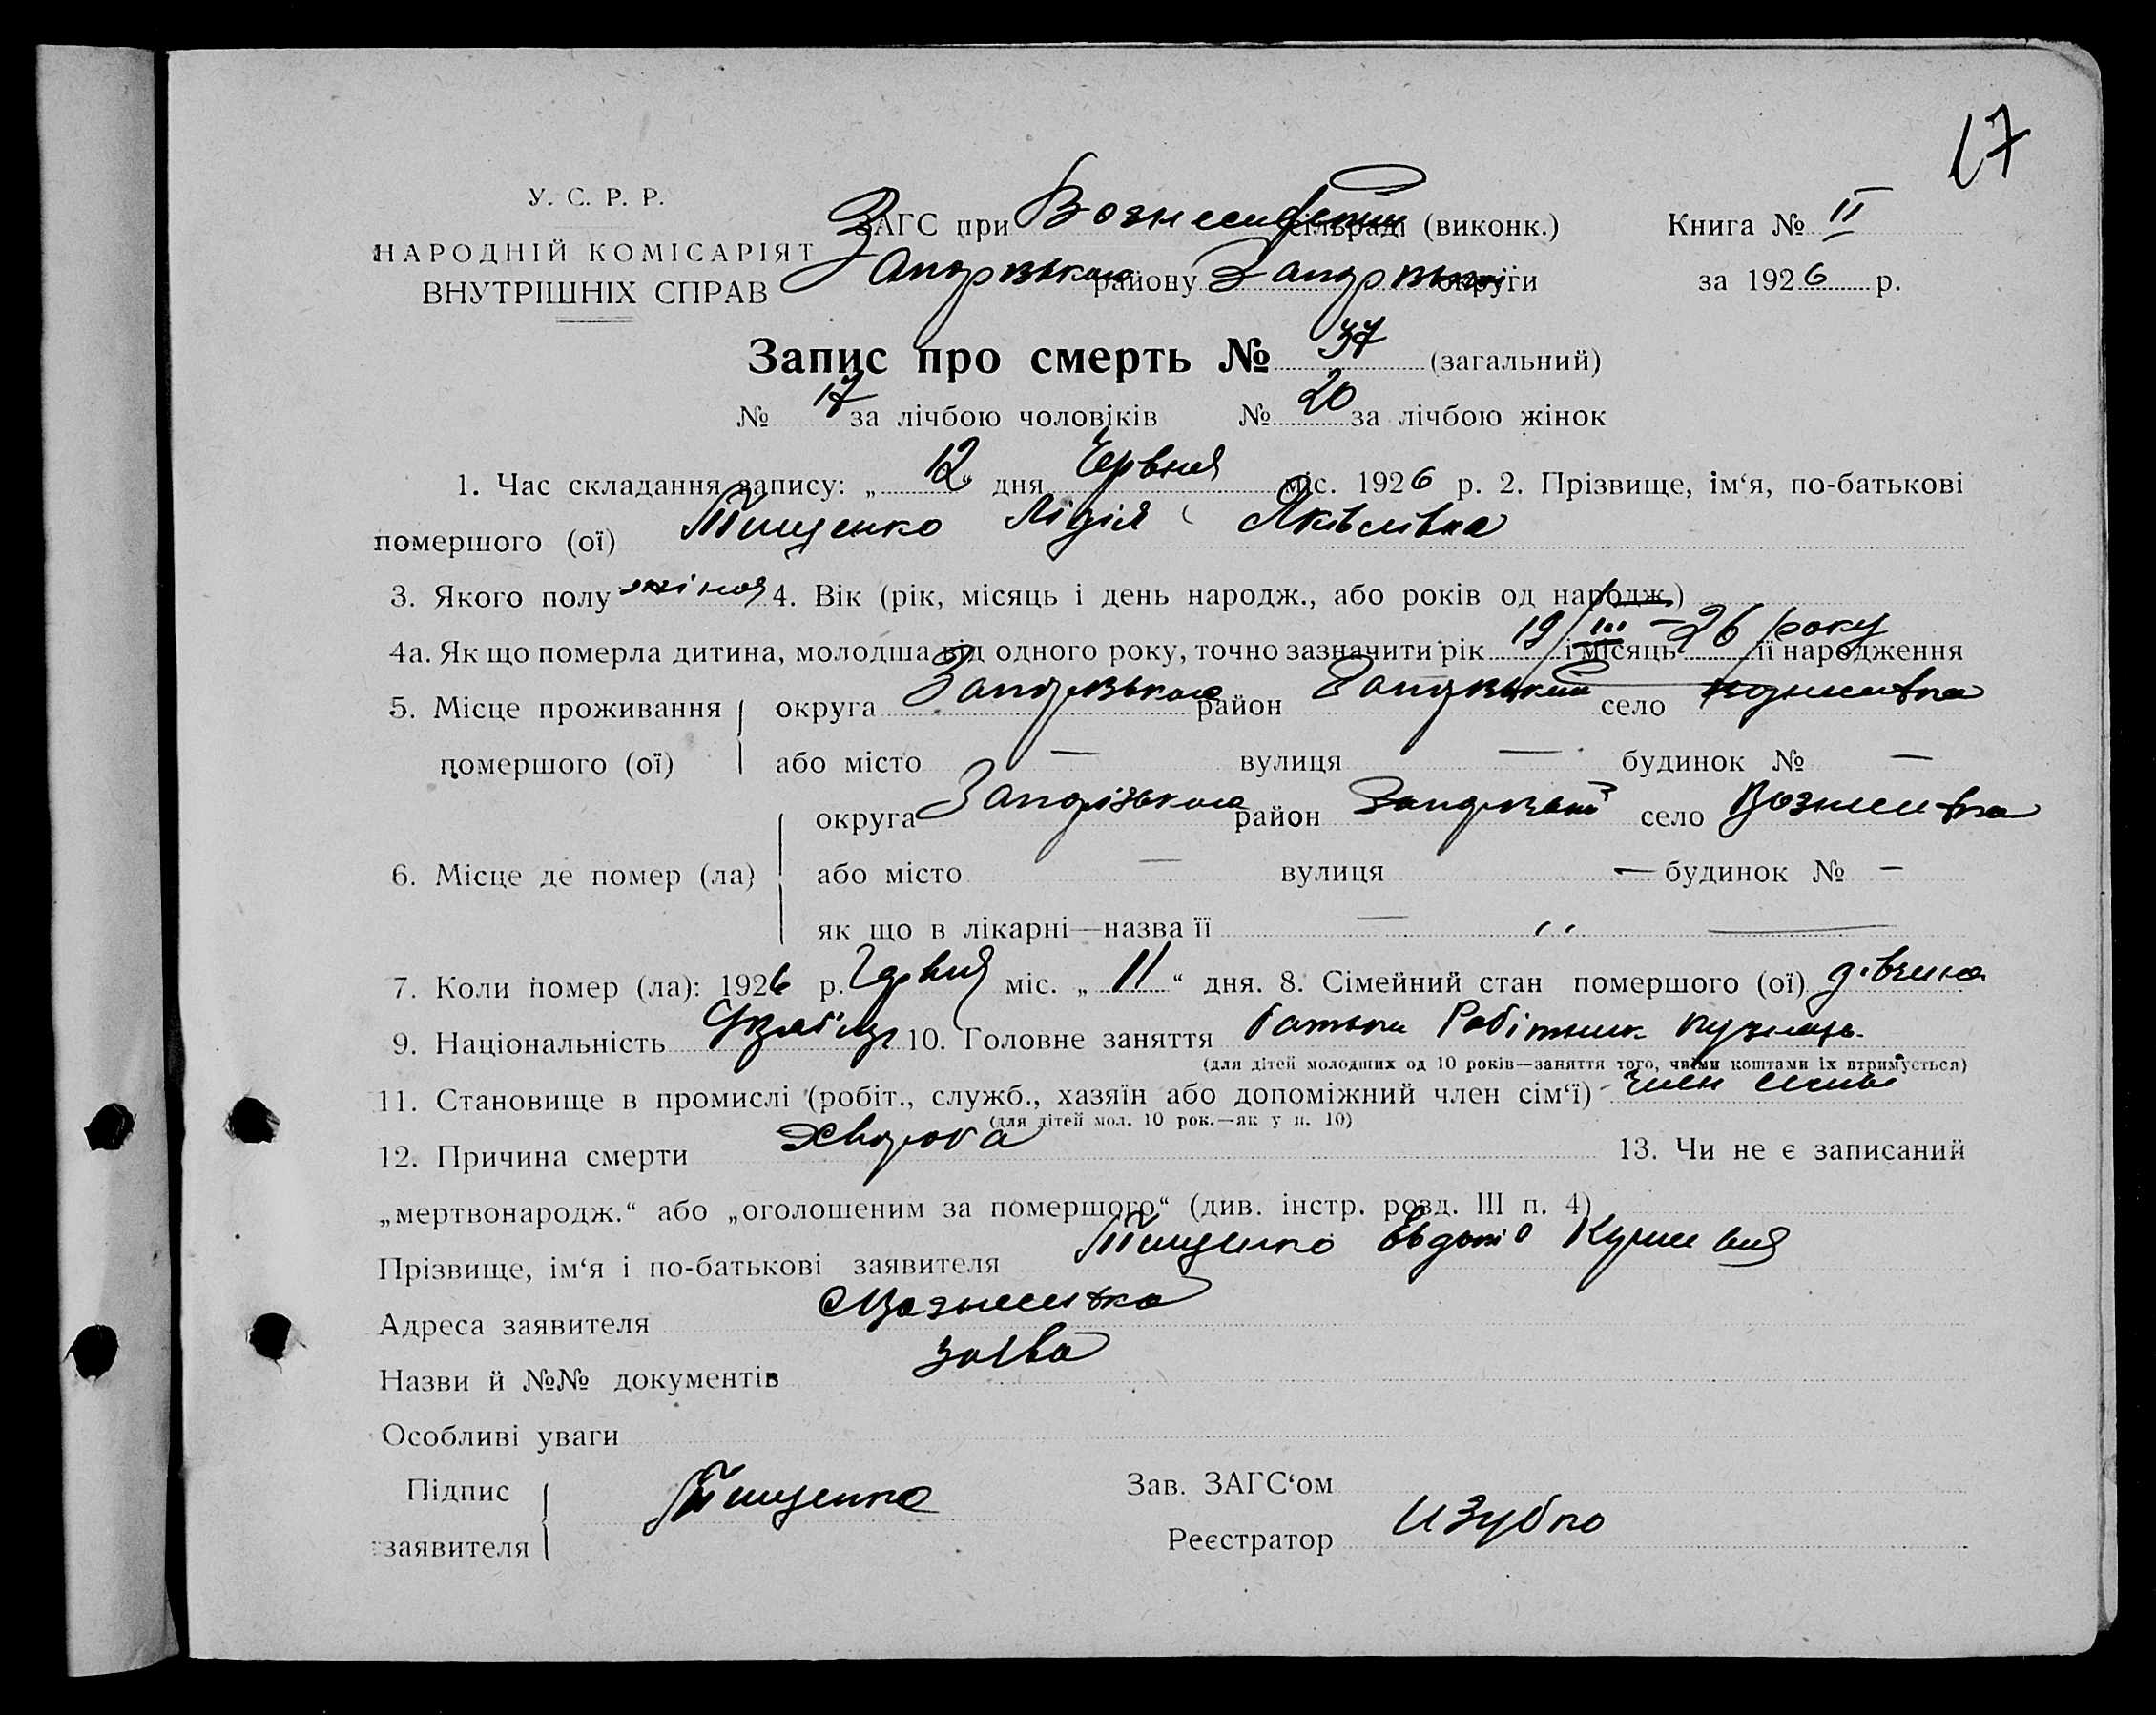 17
У. С. Р. Р.
НАРОДНІЙ КОМІСАРІЯТ
ВНУТРІШНІХ СПРАВ
ЗАГС при сільраді (виконк.)
району округи
Книга № II
за 1926 р.
Запис про смерть № 37 (загальний)
№ 17 за лічбою чоловіків № 20 за лічбою жінок
1. Час складання запису: „ 12 “ дня Червня міс. 1926 р. 2. Прізвище, ім‘я, по-батькові
помершого (ої) Тищенко Лідія Яківлівна
3. Якого полу 4. Вік (рік, місяць і день народж., або років од народж.)
4а. Як що померла дитина, молодша від одного року, точно зазначити рік 19/III – 26 року і місяць її народження
5. Місце проживання округа район село
помершого (ої) або місто — вулиця — будинок № —
округа район село
6. Місце де помер (ла) або місто — вулиця — будинок № —
як що в лікарні—назва її —
7. Коли помер (ла): 1926 р. Червня міс. „ 11 “ дня. 8. Сімейний стан помершого (ої) дівчина
9. Національність 10. Головне заняття батька Робітник
(для дітей молодших од 10 років—заняття того, чиїми коштами їх втримується)
11. Становище в промислі (робіт., служб., хазяїн або допоміжний член сім‘ї) член
(для дітей мол. 10 рок.—як у п. 10)
12. Причина смерти Хвороба 13. Чи не є записаний
„мертвонародж.“ або „оголошеним за помершого“ (див. інстр. розд. III п. 4)
Прізвище, ім‘я і по-батькові заявителя Тищенко
Адреса заявителя
Назви й №№ документів заява
Особливі уваги
Підпис
заявителя Тищенко
Зав. ЗАГС‘ом
Реєстратор И Зубко